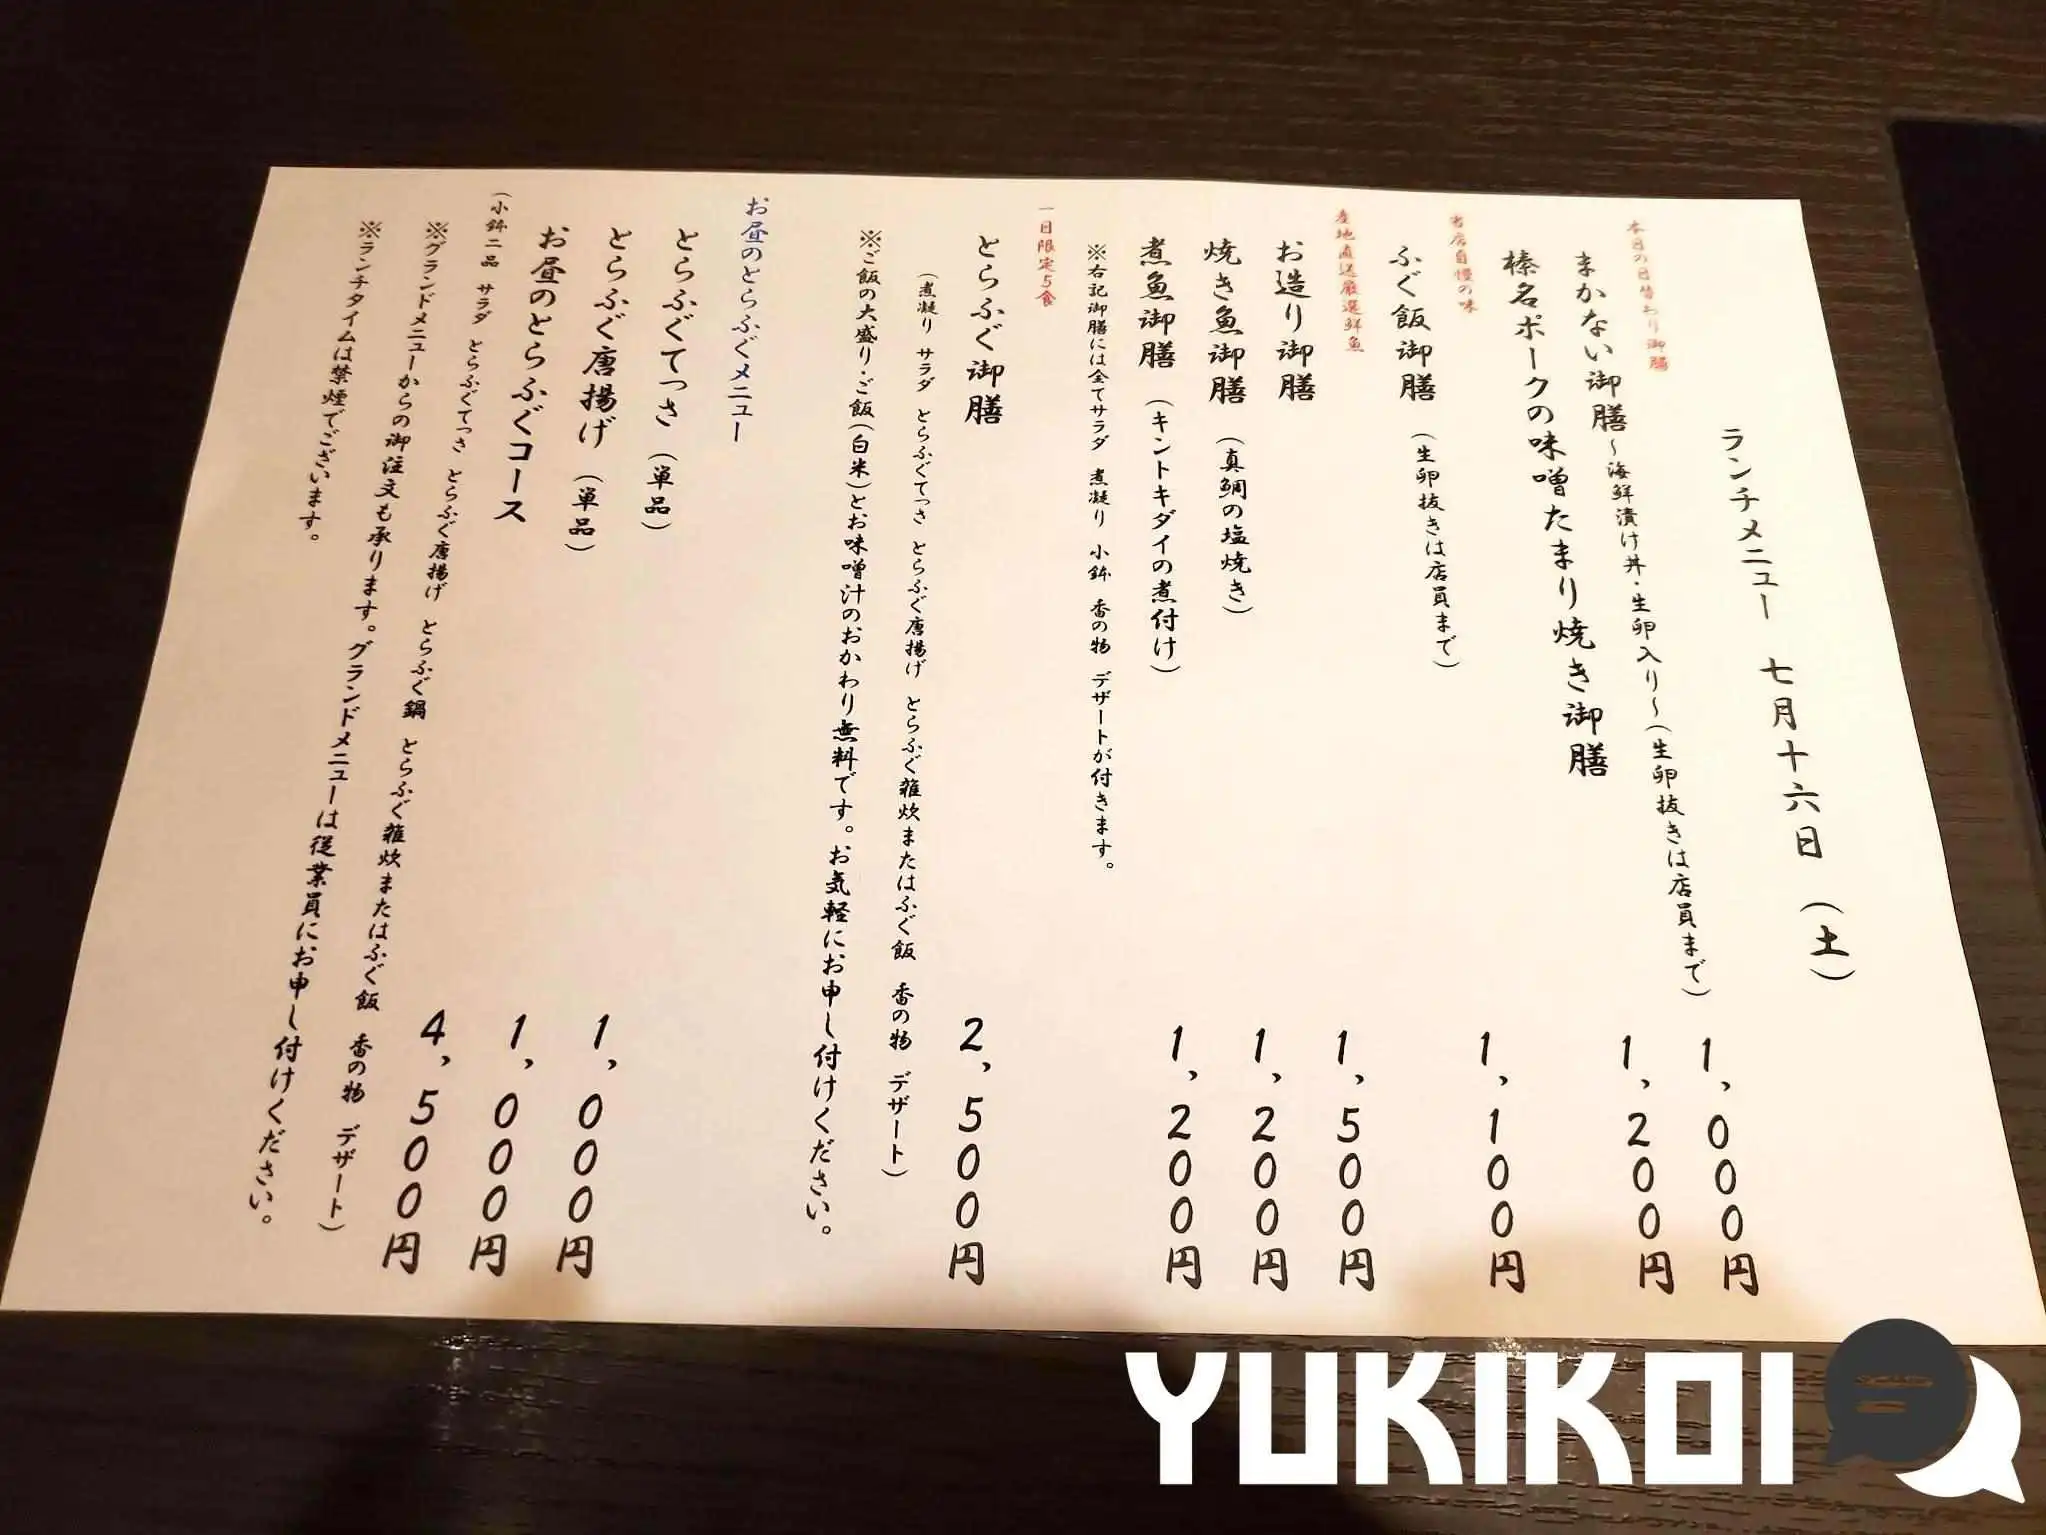 ランチメニュー 七月十六日（土）
本日の日替わり御膳
まかない御膳～海鮮漬け丼・生卵入り～（生卵抜きは店員まで） 1,000円
榛名ポークの味噌たまり焼き御膳 1,200円
当店自慢の味
ふぐ飯御膳（生卵抜きは店員まで） 1,100円
産地直送厳選鮮魚
お造り御膳 1,500円
焼き魚御膳（真鯛の塩焼き） 1,200円
煮魚御膳（キントキダイの煮付け） 1,200円
※右記御膳には全てサラダ 煮凝り 小鉢 香の物 デザートが付きます。
一日限定5食
とらふぐ御膳 2,500円
（煮凝り サラダ とらふぐてっさ とらふぐ唐揚げ とらふぐ雑炊またはふぐ飯 香の物 デザート）
※ご飯の大盛り・ご飯（白米）とお味噌汁のおかわり無料です。お気軽にお申し付けください。
お昼のとらふぐメニュー
とらふぐてっさ（単品） 1,000円
とらふぐ唐揚げ（単品） 1,000円
お昼のとらふぐコース 4,500円
（小鉢二品 サラダ とらふぐてっさ とらふぐ唐揚げ とらふぐ鍋 とらふぐ雑炊またはふぐ飯 香の物 デザート）
※グランドメニューからの御注文も承ります。グランドメニューは従業員にお申し付けください。
※ランチタイムは禁煙でございます。
YUKIKOI